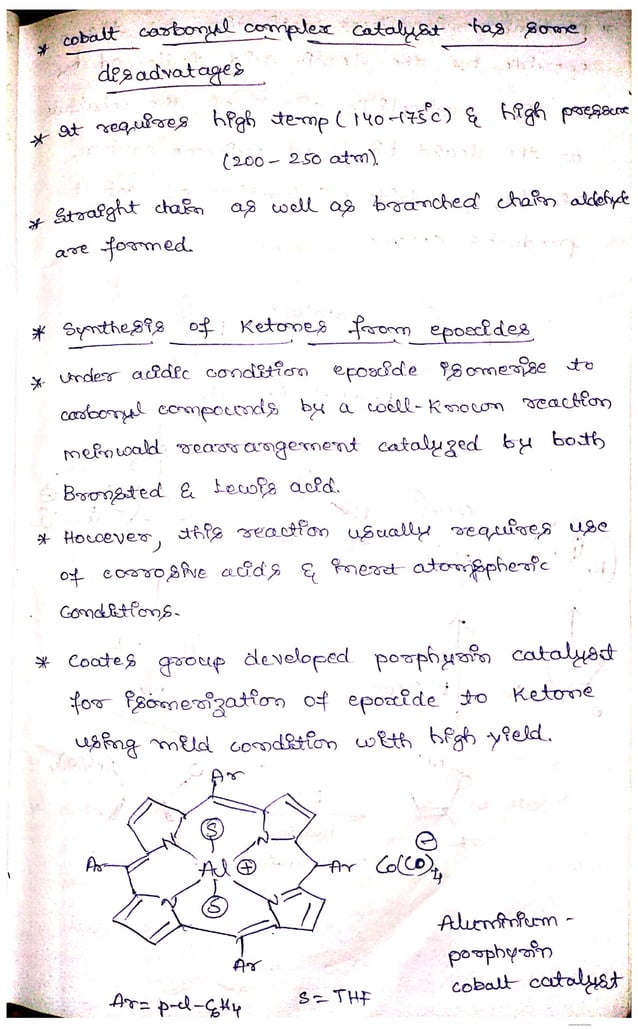 * cobalt carbonyl complex catalyst has some
disadvatages
* It requires high temp (140-175°C) & high pressure
(200 - 250 atm).
* Straight chain as well as branched chain aldehyde
are formed.
* Synthesis of Ketones from epoxides
* Under acidic condition epoxide isomerise to
carbonyl compounds by a well-known reaction
meinwald rearrangement catalyzed by both
Bronsted & Lewis acid.
* However, this reaction usually requires use
of corrosive acids & inert atomispheric
conditions.
* Coates group developed porphyrin catalyst
for isomerization of epoxide to Ketone
using mild condition with high yield.
Ar
N
N
S
Ar
Al
+
Ar
Co(CO)₄⁻
S
N
N
Ar
Aluminium -
porphyrin
cobalt catalyst
Ar = p-cl-C₆H₄
S = THF